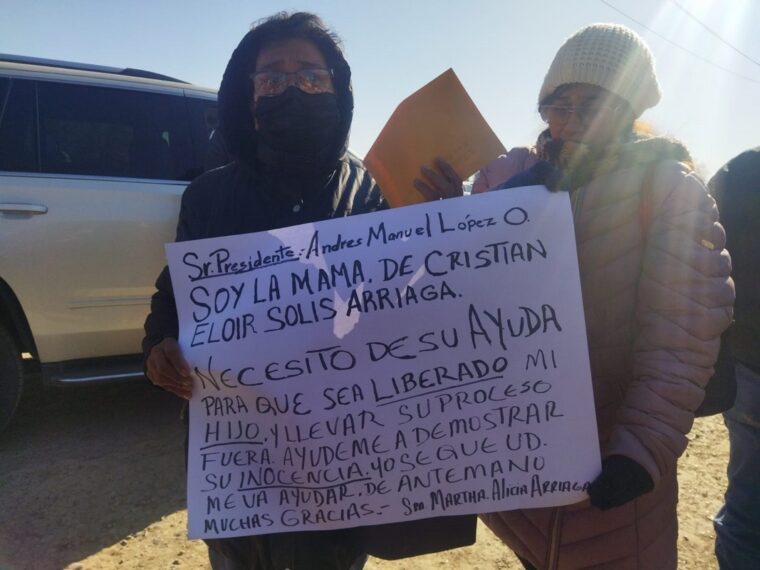 Sr. Presidente.- Andres Manuel López O.
SOY LA MAMA. DE CRISTIAN
ELOIR SOLIS ARRIAGA.
NECESITO DE SU AYUDA
PARA QUE SEA LIBERADO MI
HIJO. Y LLEVAR SU PROCESO
FUERA. AYUDEME A DEMOSTRAR
SU INOCENCIA. YO SE QUE UD.
ME VA AYUDAR. DE ANTEMANO
MUCHAS GRACIAS.- Sra MARTHA. ALICIA ARRIAGA